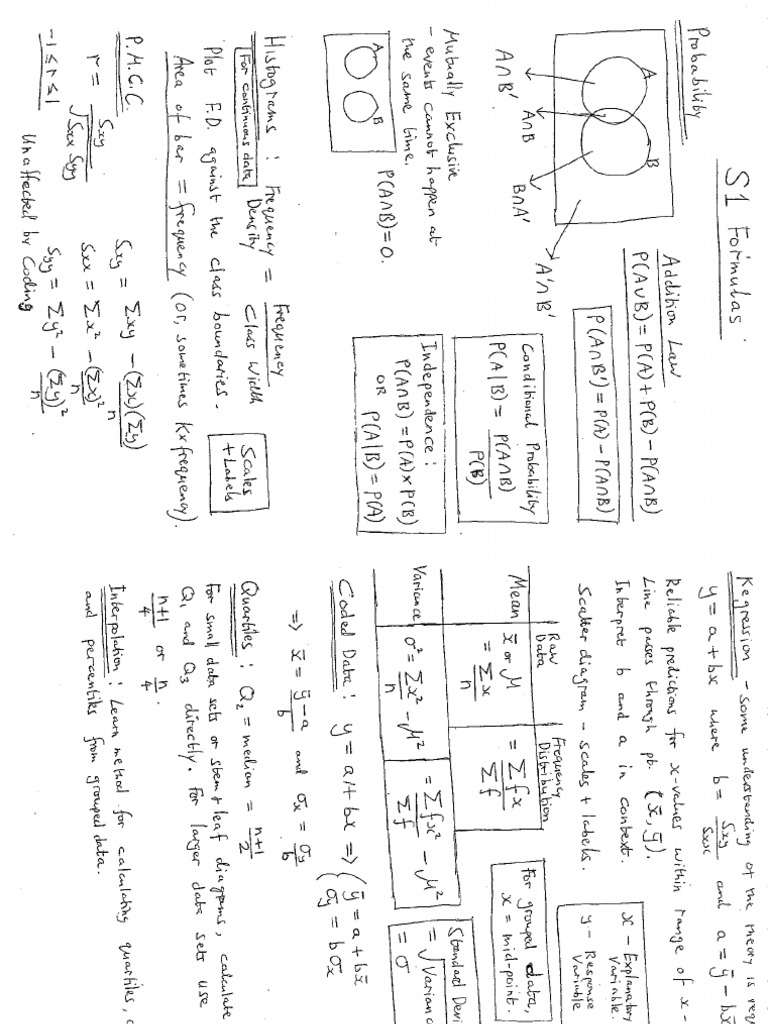 S1 Formulas.
Probability
A
B
A∩B'
A∩B
B∩A'
A'∩B'
Addition Law
P(A∪B) = P(A) + P(B) - P(A∩B)
P(A∩B') = P(A) - P(A∩B)
Mutually Exclusive
- events cannot happen at
the same time.
A
B
P(A∩B) = 0.
Conditional Probability
P(A|B) = P(A∩B)
P(B)
Independence :
P(A∩B) = P(A) x P(B)
OR P(A|B) = P(A)
Histograms : Frequency Density = Frequency
Class Width
For continuous data
Plot F.D. against the class boundaries.
Scales
+ Labels
Area of bar = frequency (or, sometimes K x frequency).
P.M.C.C.
r = Sxy
√Sxx Syy
-1 ≤ r ≤ 1
Sxy = Σxy - (Σx)(Σy)
n
Sxx = Σx² - (Σx)²
n
Syy = Σy² - (Σy)²
n
Unaffected by Coding.
Regression - some understanding of the theory is
y = a + bx where b = Sxy
Sxx
and a = ȳ - bx̄
Reliable predictions for x-values within range of x-
Line passes through pt. (x̄, ȳ).
Interpret b and a in context.
Scatter diagram - scales + labels.
x - Explanatory
Variable.
y - Response
Variable
Raw
Data
Frequency
Distribution
Mean
x̄ or μ
= Σx
n
= Σfx
Σf
Variance
σ² = Σx² - μ²
n
= Σfx² - μ²
Σf
For grouped data,
x = mid-point.
Standard Devi
= √Varian
= σ
Coded Data : y = a + bx => { ȳ = a + bx̄
σy = bσx
=> x̄ = ȳ - a
b
and σx = σy
b
Quartiles : Q₂ = median = n+1
2
For small data sets or stem + leaf diagrams, calculate
Q₁ and Q₃ directly. For larger data sets use
n+1
4
or n
4 .
Interpolation : Learn method for calculating quartiles,
and percentiles from grouped data.